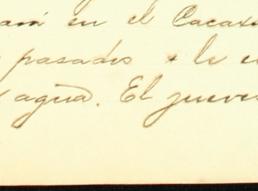 en el Cacax
pasados & le e
agua. El jueves